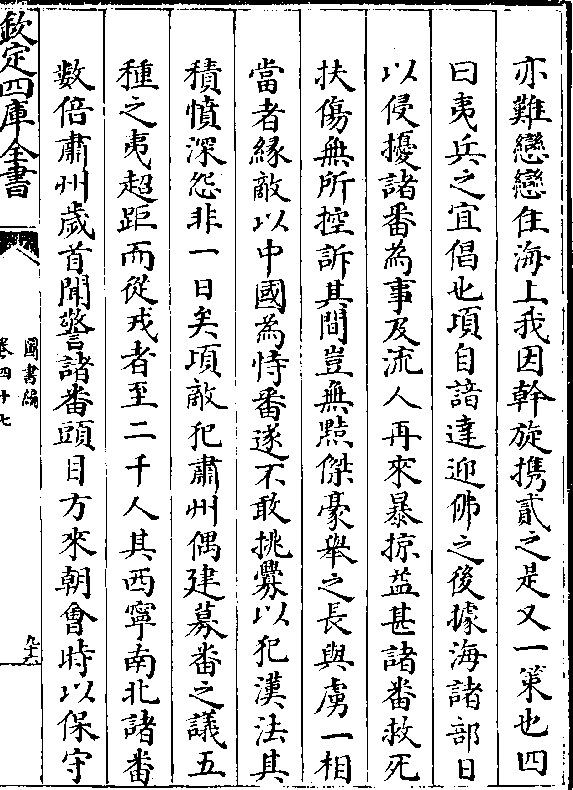 亦難戀戀住海上我因幹旋攜貳之是又一策也四
曰夷兵之宜倡也項自諳達迎佛之後據海諸部日
以侵擾諸番為事及流人再來暴掠益甚諸番救死
扶傷無所控訴其間豈無黠傑豪舉之長與虜一相
當者緣敵以中國為恃番遂不敢挑釁以犯漢法其
積憤深怨非一日矣項敵犯肅州偶建募番之議五
種之夷超距而從戎者至二千人其西寧南北諸番
數倍肅州歲首聞警諸番頭目方來朝會時以保守
欽定四庫全書
圖書編
卷四十七
九十六